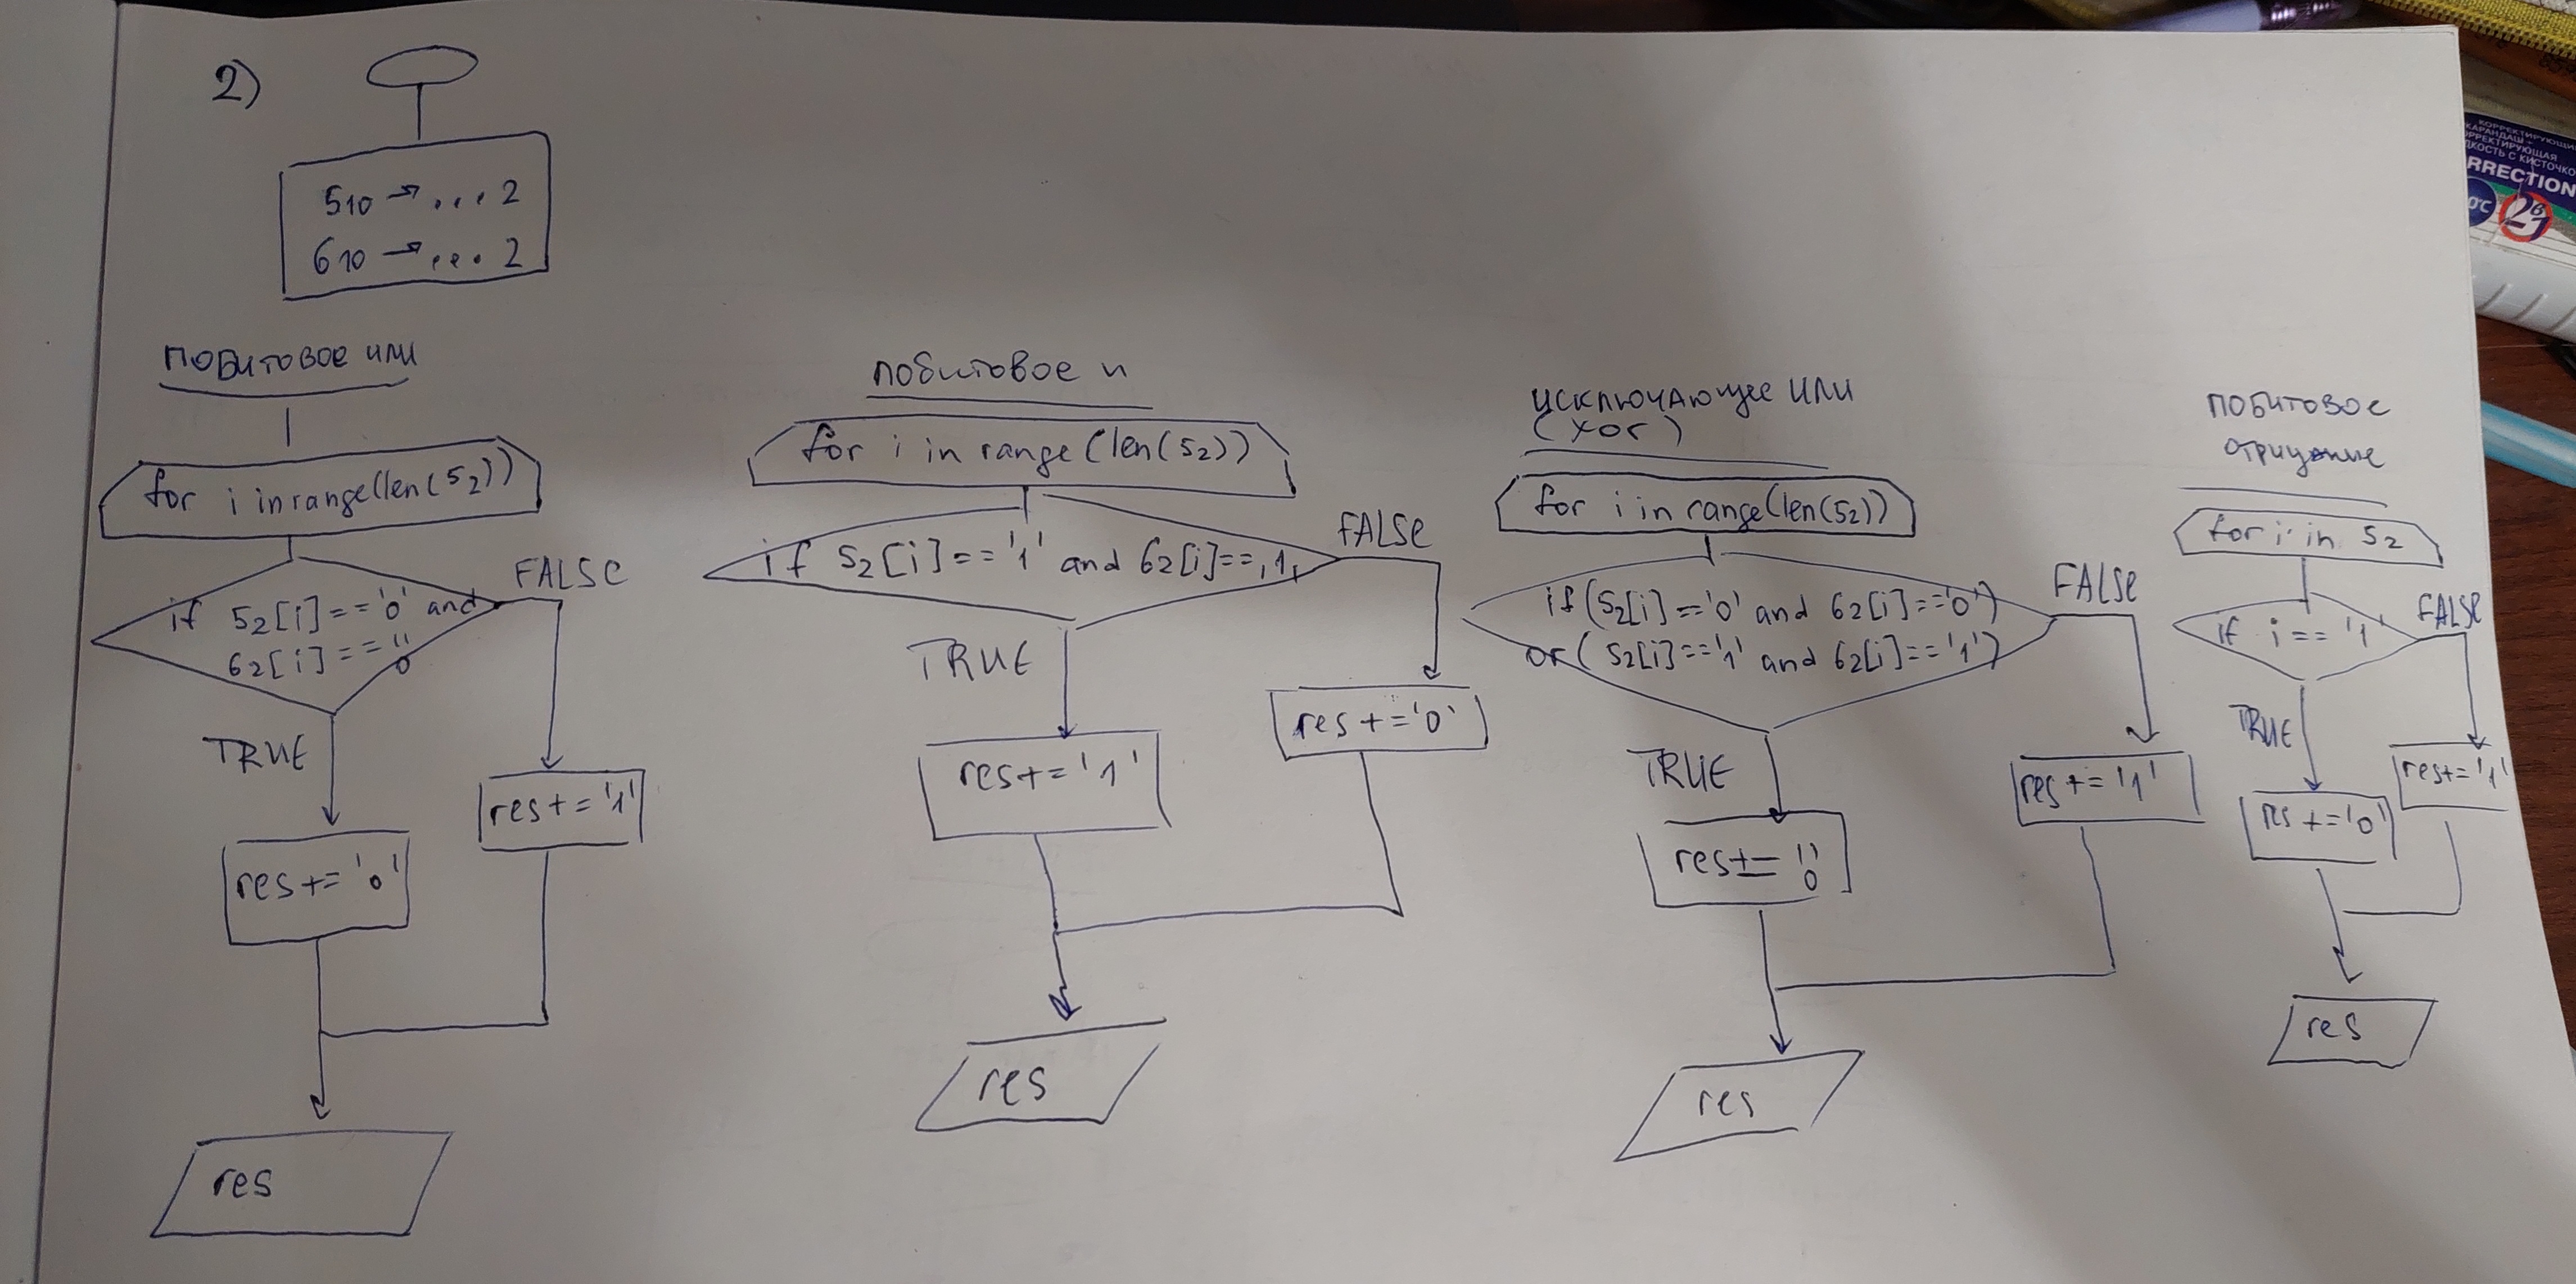 2)
5₁₀ → ... 2
6₁₀ → ... 2
побитовое или
for i in range(len(5₂))
if 5₂[i]=='0' and
6₂[i]==''0
FALSE
TRUE
res+='1'
res+='0'
res
побитовое и
for i in range(len(5₂))
if 5₂[i]=='1' and 6₂[i]==,1,
FALSE
TRUE
res+='0'
res+='1'
res
исключающее или
(xor)
for i in range(len(5₂))
if(5₂[i]=='0' and 6₂[i]=='0')
or(5₂[i]=='1' and 6₂[i]=='1')
FALSE
TRUE
res+='1'
res+=''0
res
побитовое
отрицание
for i in 5₂
if i=='1'
FALSE
TRUE
res+='1'
res+='0'
res
КОРРЕКТИРУЮЩАЯ
RRECTION
0°C
2в1